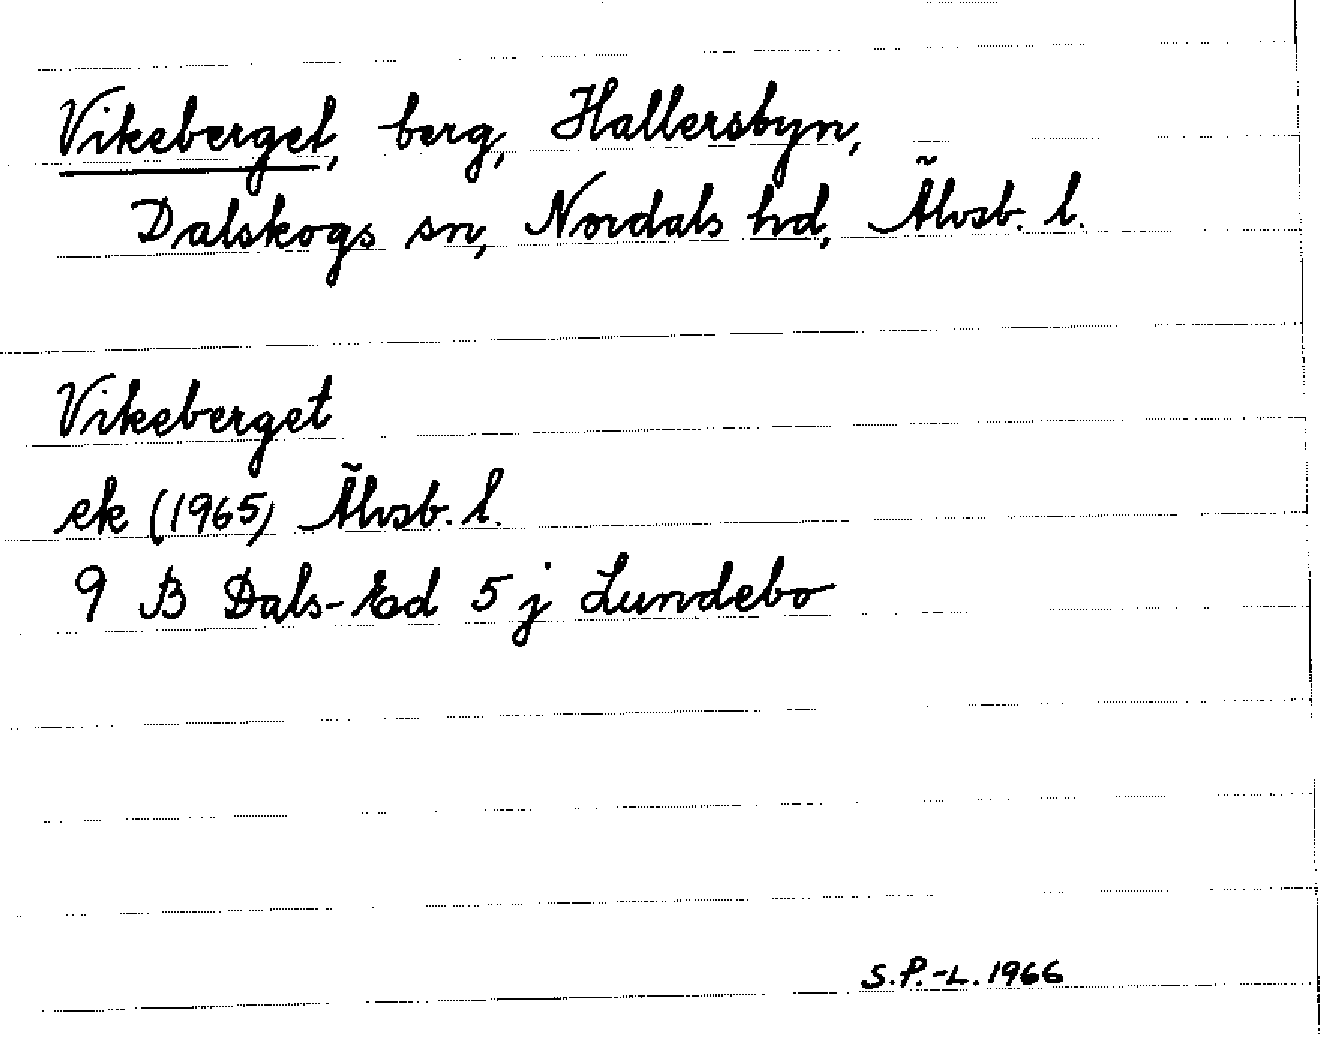 Vikeberget, berg, Hallersbyn,
Dalskogs sn, Nordals hd, Älvsb. l.
Vikeberget
ek (1965) Älvsb. l.
9 B Dals-Ed 5 j Lundebo
S.P.-L. 1966